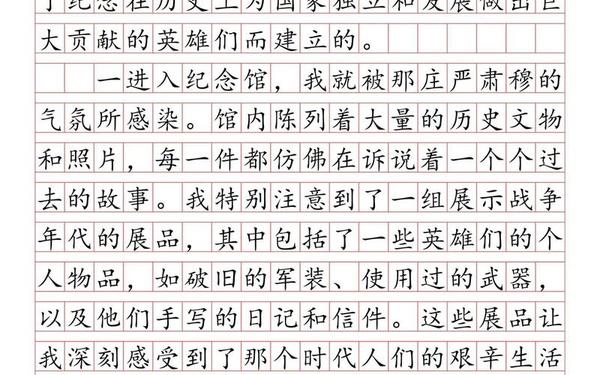 了纪念在历史上为国家独立和发展做出巨
大贡献的英雄们而建立的。
一进入纪念馆，我就被那庄严肃穆的
气氛所感染。馆内陈列着大量的历史文物
和照片，每一件都仿佛在诉说着一个个过
去的故事。我特别注意到了一组展示战争
年代的展品，其中包括了一些英雄们的个
人物品，如破旧的军装、使用过的武器，
以及他们手写的日记和信件。这些展品让
我深刻感受到了那个时代人们的艰辛生活